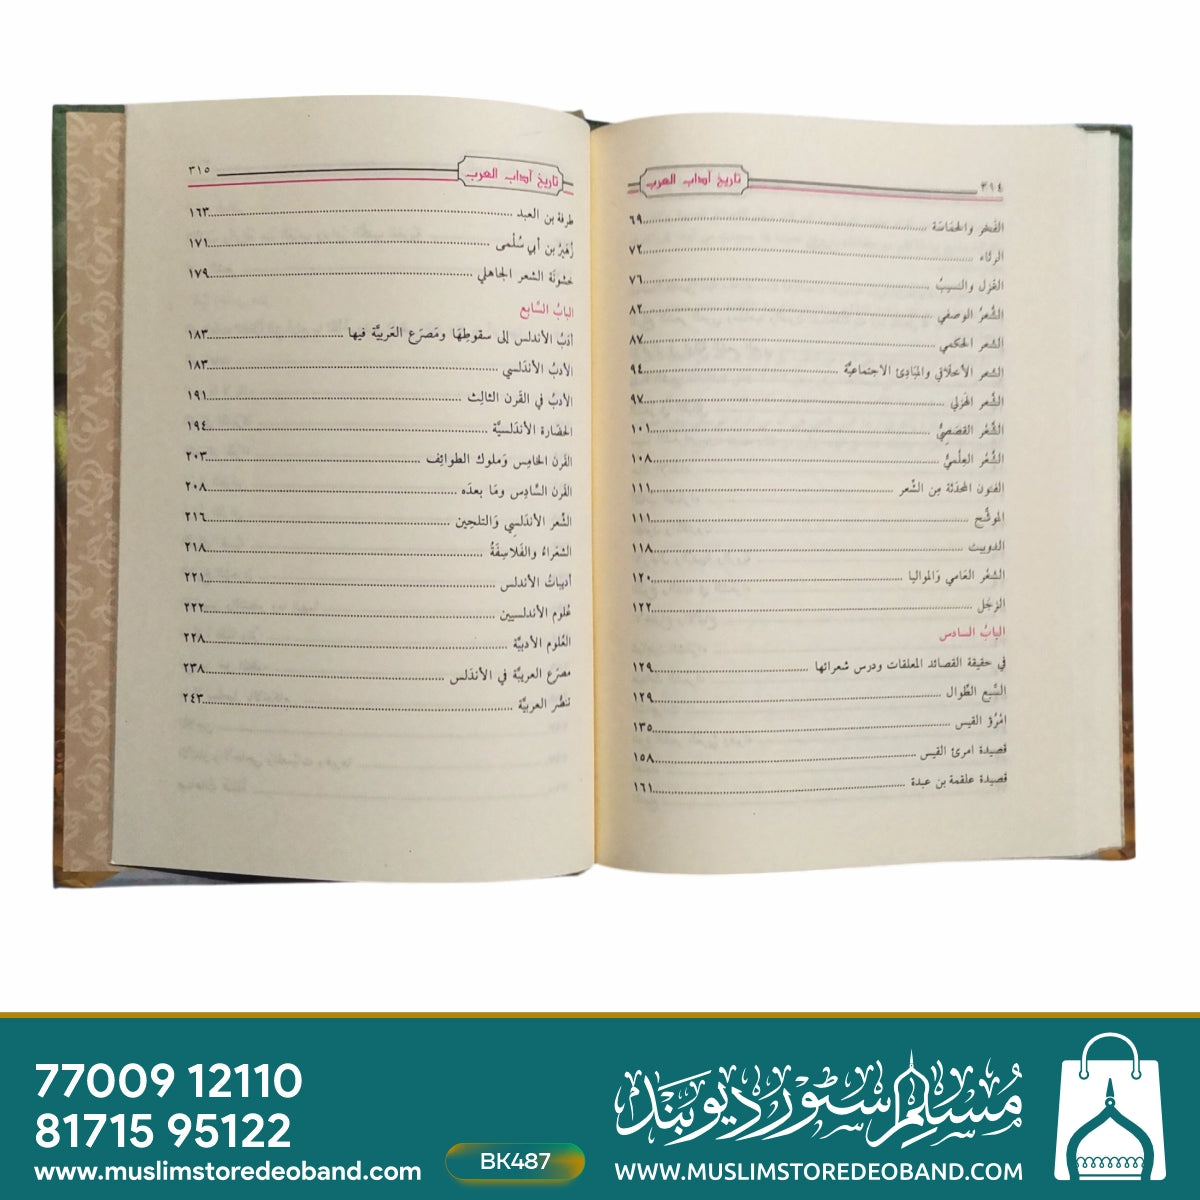 ٣٩٤ تاريخ آداب العرب
الفَخر والحَمَاسَة ٦٩
الرثاء ٧٢
الغَزل والنسيبُ ٧٦
الشِّعرُ الوصفي ٨٢
الشعر الحكمي ٨٧
الشعر الأخلَاقي والمبَادِئ الاجتماعيَّة ٩٤
الشِّعر الهَزلي ٩٧
الشِّعْر القصَصِيُّ ١٠١
الشِّعْر العِلْميُّ ١٠٨
الفنون المحدَثة مِن الشِّعر ١١١
الموشَّح ١١١
الدوبيت ١١٨
الشعْر العَامي وَالمواليا ١٢٠
الزجَل ١٢٢
البابُ السادس
في حقيقة القصائد المعلقات ودرس شعرائها ١٢٩
السَّبع الطِّوال ١٢٩
امْرُؤ القيس ١٣٥
قصيدة امرئ القيس ١٥٨
قصيدة علقمة بن عبدة ١٦١
تاريخ آداب العرب ٣١٥
طرفة بن العبد ١٦٣
زُهَيْرُ بن أبي سُلْمى ١٧١
خشونَة الشعر الجاهلي ١٧٩
البابُ السَّابع
أدَبُ الأندلس إلى سقوطِهَا ومَصرَع العَربيَّة فيها ١٨٣
الأدبُ الأندَلسي ١٨٣
الأدبُ في القَرن الثالِث ١٩١
الحضَارة الأندَلسيَّة ١٩٤
القَرنَ الخامِس وَملوك الطوائِف ٢٠٣
القَرنَ السَّادِس ومَا بعدَه ٢٠٨
الشِّعر الأندَلسِي وَالتلحِين ٢١٦
الشعَراءُ والفَلَاسِفَةُ ٢١٨
أديبَاتُ الأندلس ٢٢١
عُلوم الأندلسيين ٢٢٢
العُلوم الأدبيَّة ٢٢٨
مصرَع العربيَّة في الأندَلس ٢٣٨
تنصُّر العربيَّة ٢٤٣
77009 12110
81715 95122
www.muslimstoredeoband.com
BK487
مُسلِم سٹور دیوبند
WWW.MUSLIMSTOREDEOBAND.COM